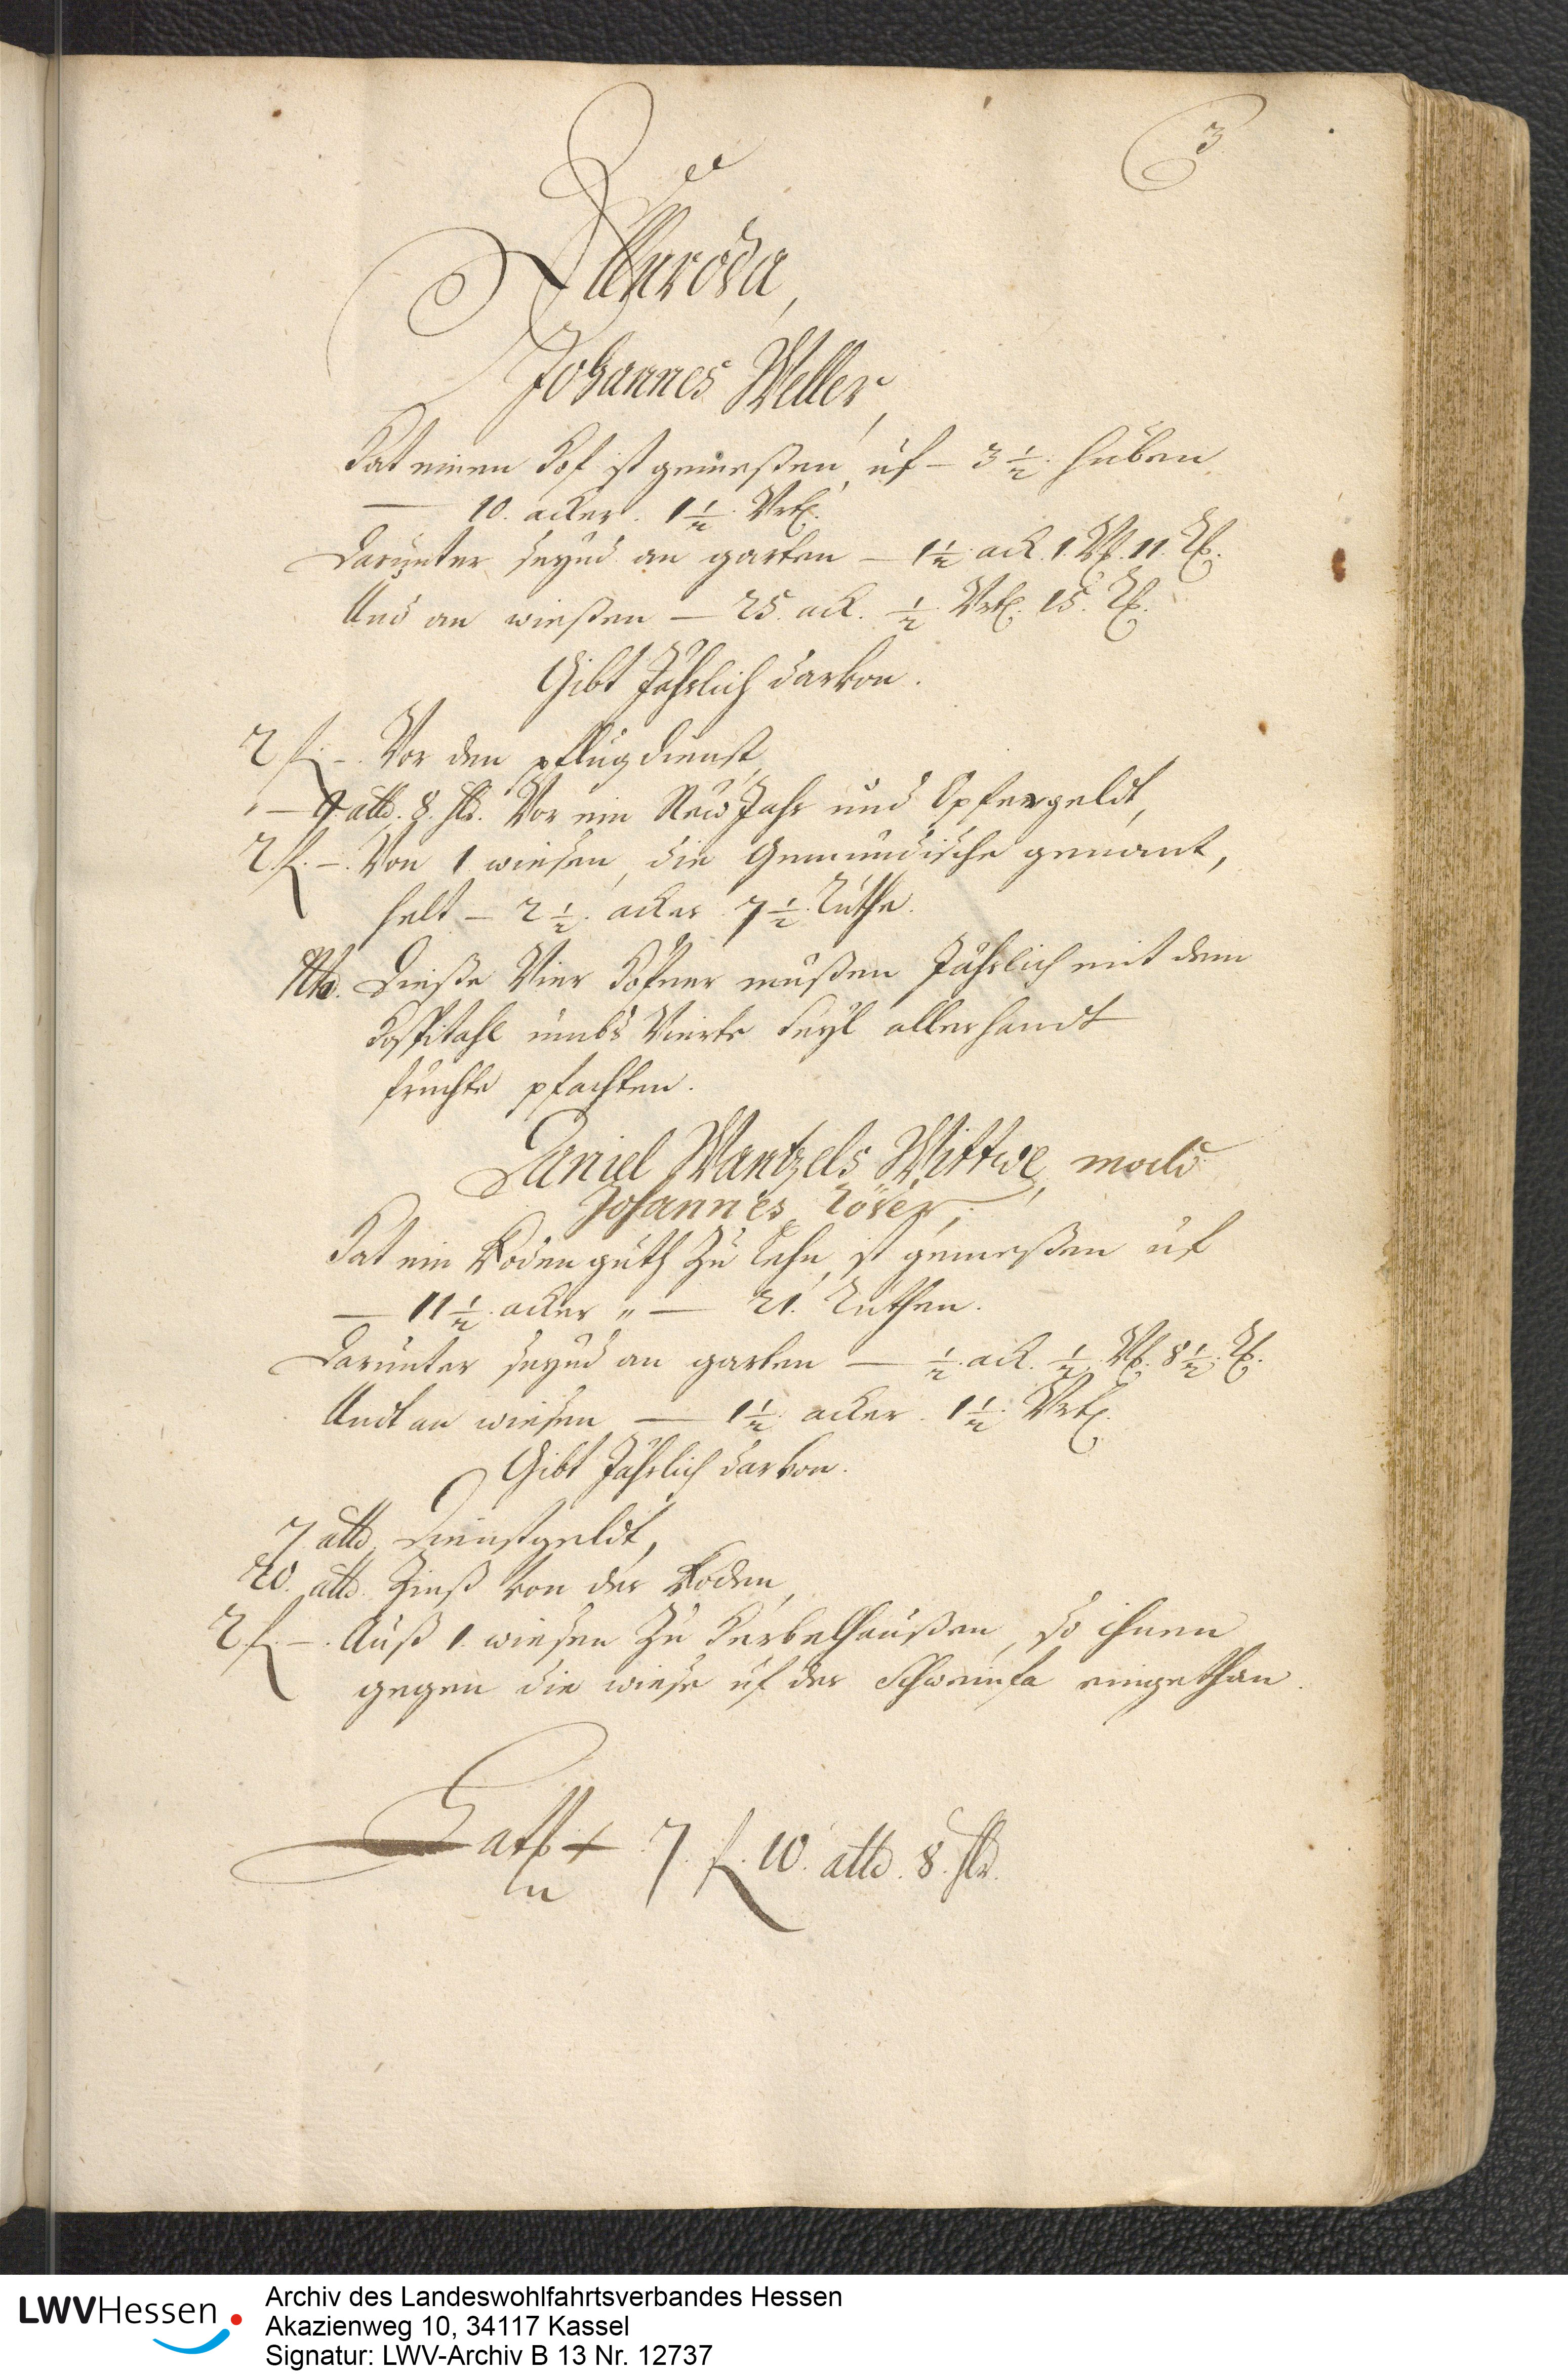 3
Ellnroda,
Johannes Weller,
Hat einen Hof ist gemeßen, uf – 3 1/2. huben
— 10. acker. 1 1/2. Vrtl.
Darunter seynd an garten – 1 1/2. ack. 1. Vtl. 11. Rt.
Und an wießen – 25. ack. 1/2. Vrtl. 15. Rt.
Gibt Jährlich darvon.
2 fl. –. Vor den pflugdienst,
– 9. albs. 8. hlr. Vor ein New Jahr und Opfergeldt,
2 fl. –. Von 1 wiesen, die Gemündische genant,
helt – 2 1/2. acker 7 1/2. Ruthe.
NB. Dieße Vier Höfner müßen Jährlich mit dem
Hospitahl umbs Vierte theyl allerhandt
früchte pfachten.
Daniel Wantzels Wittwe, modo
Johannes Röser,
Hat ein Rödenguth zu Lehn, ist gemeßen uf
— 11 1/2. acker „ — 21. Ruthen.
Darunter seynd an garten — 1/2. ack. 1/2. Vtl. 8 1/2. Rt.
Undt an wiesen — 1 1/2. acker. 1 1/2. Vrtl.
Gibt Jährlich darvon.
7 albs. Dienstgeldt,
20. albs. Zinß von der Röden,
2 fl. –. Auß 1. wiesen zu Herbelhaußen, so ihnen
gegen die wiese uf der Schweinfa eingethan.
Latus 7. fl. 10. albs. 8. hlr.
LWVHessen
Archiv des Landeswohlfahrtsverbandes Hessen
Akazienweg 10, 34117 Kassel
Signatur: LWV-Archiv B 13 Nr. 12737